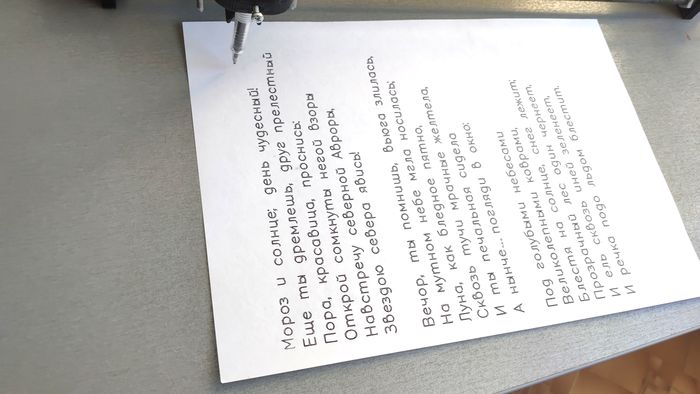 Мороз и солнце; день чудесный!
Еще ты дремлешь, друг прелестный
Пора, красавица, проснись:
Открой сомкнуты негой взоры
Навстречу северной Авроры,
Звездою севера явись!
Вечор, ты помнишь, вьюга злилась,
На мутном небе мгла носилась;
Луна, как бледное пятно,
Сквозь тучи мрачные желтела,
И ты печальная сидела
А нынче... погляди в окно:
Под голубыми небесами
Великолепными коврами,
Блестя на солнце, снег лежит;
Прозрачный лес один чернеет,
И ель сквозь иней зеленеет,
И речка подо льдом блестит.